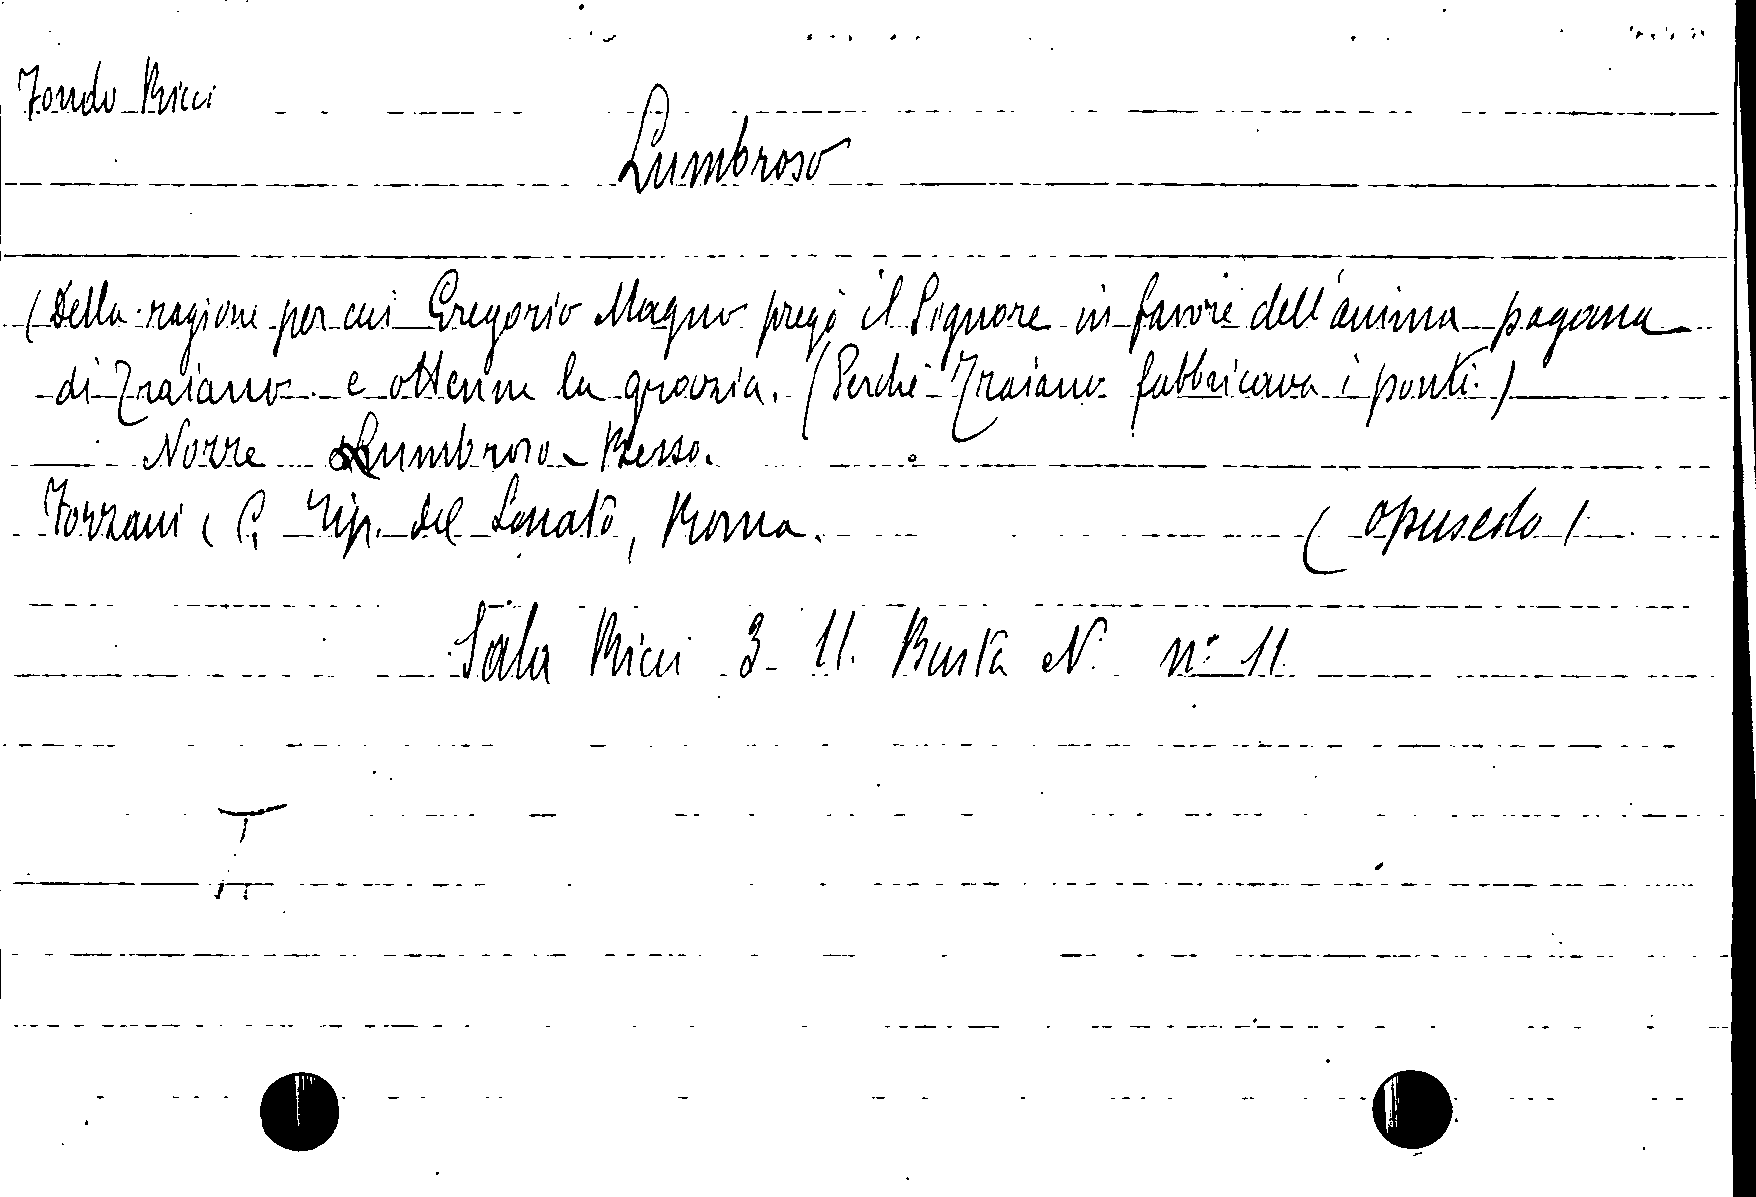 Fondo Ricci
Lumbroso
(Della ragione per cui Gregorio Magno pregò il Signore in favore dell'anima pagana
di Traiano e ottenne la grazia. (Perché Traiano fabbricava i ponti.)
Nozze Lumbroso - Besso.
Forzani e C. Tip. del Senato, Roma.
(opuscolo)
Sala Ricci 3. 11. Busta N. nº 11